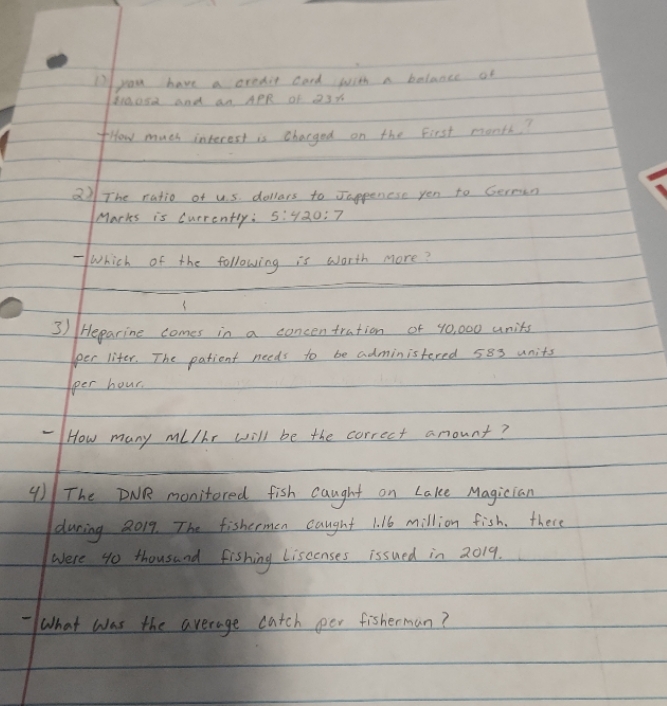 1) you have a credit card with a balance of
$10,052 and an APR of 23%
- How much interest is charged on the first month?
2) The ratio of u.s. dollars to Jappenese yen to German
Marks is currently: 5:420:7
- Which of the following is worth more?
3) Heparine comes in a concentration of 40,000 units
per liter. The patient needs to be administered 583 units
per hour.
- How many mL/hr will be the correct amount?
4) The DNR monitored fish caught on Lake Magician
during 2019. The fishermen caught 1.16 million fish. there
were 40 thousand fishing Liscenses issued in 2019.
- What was the average catch per fisherman?